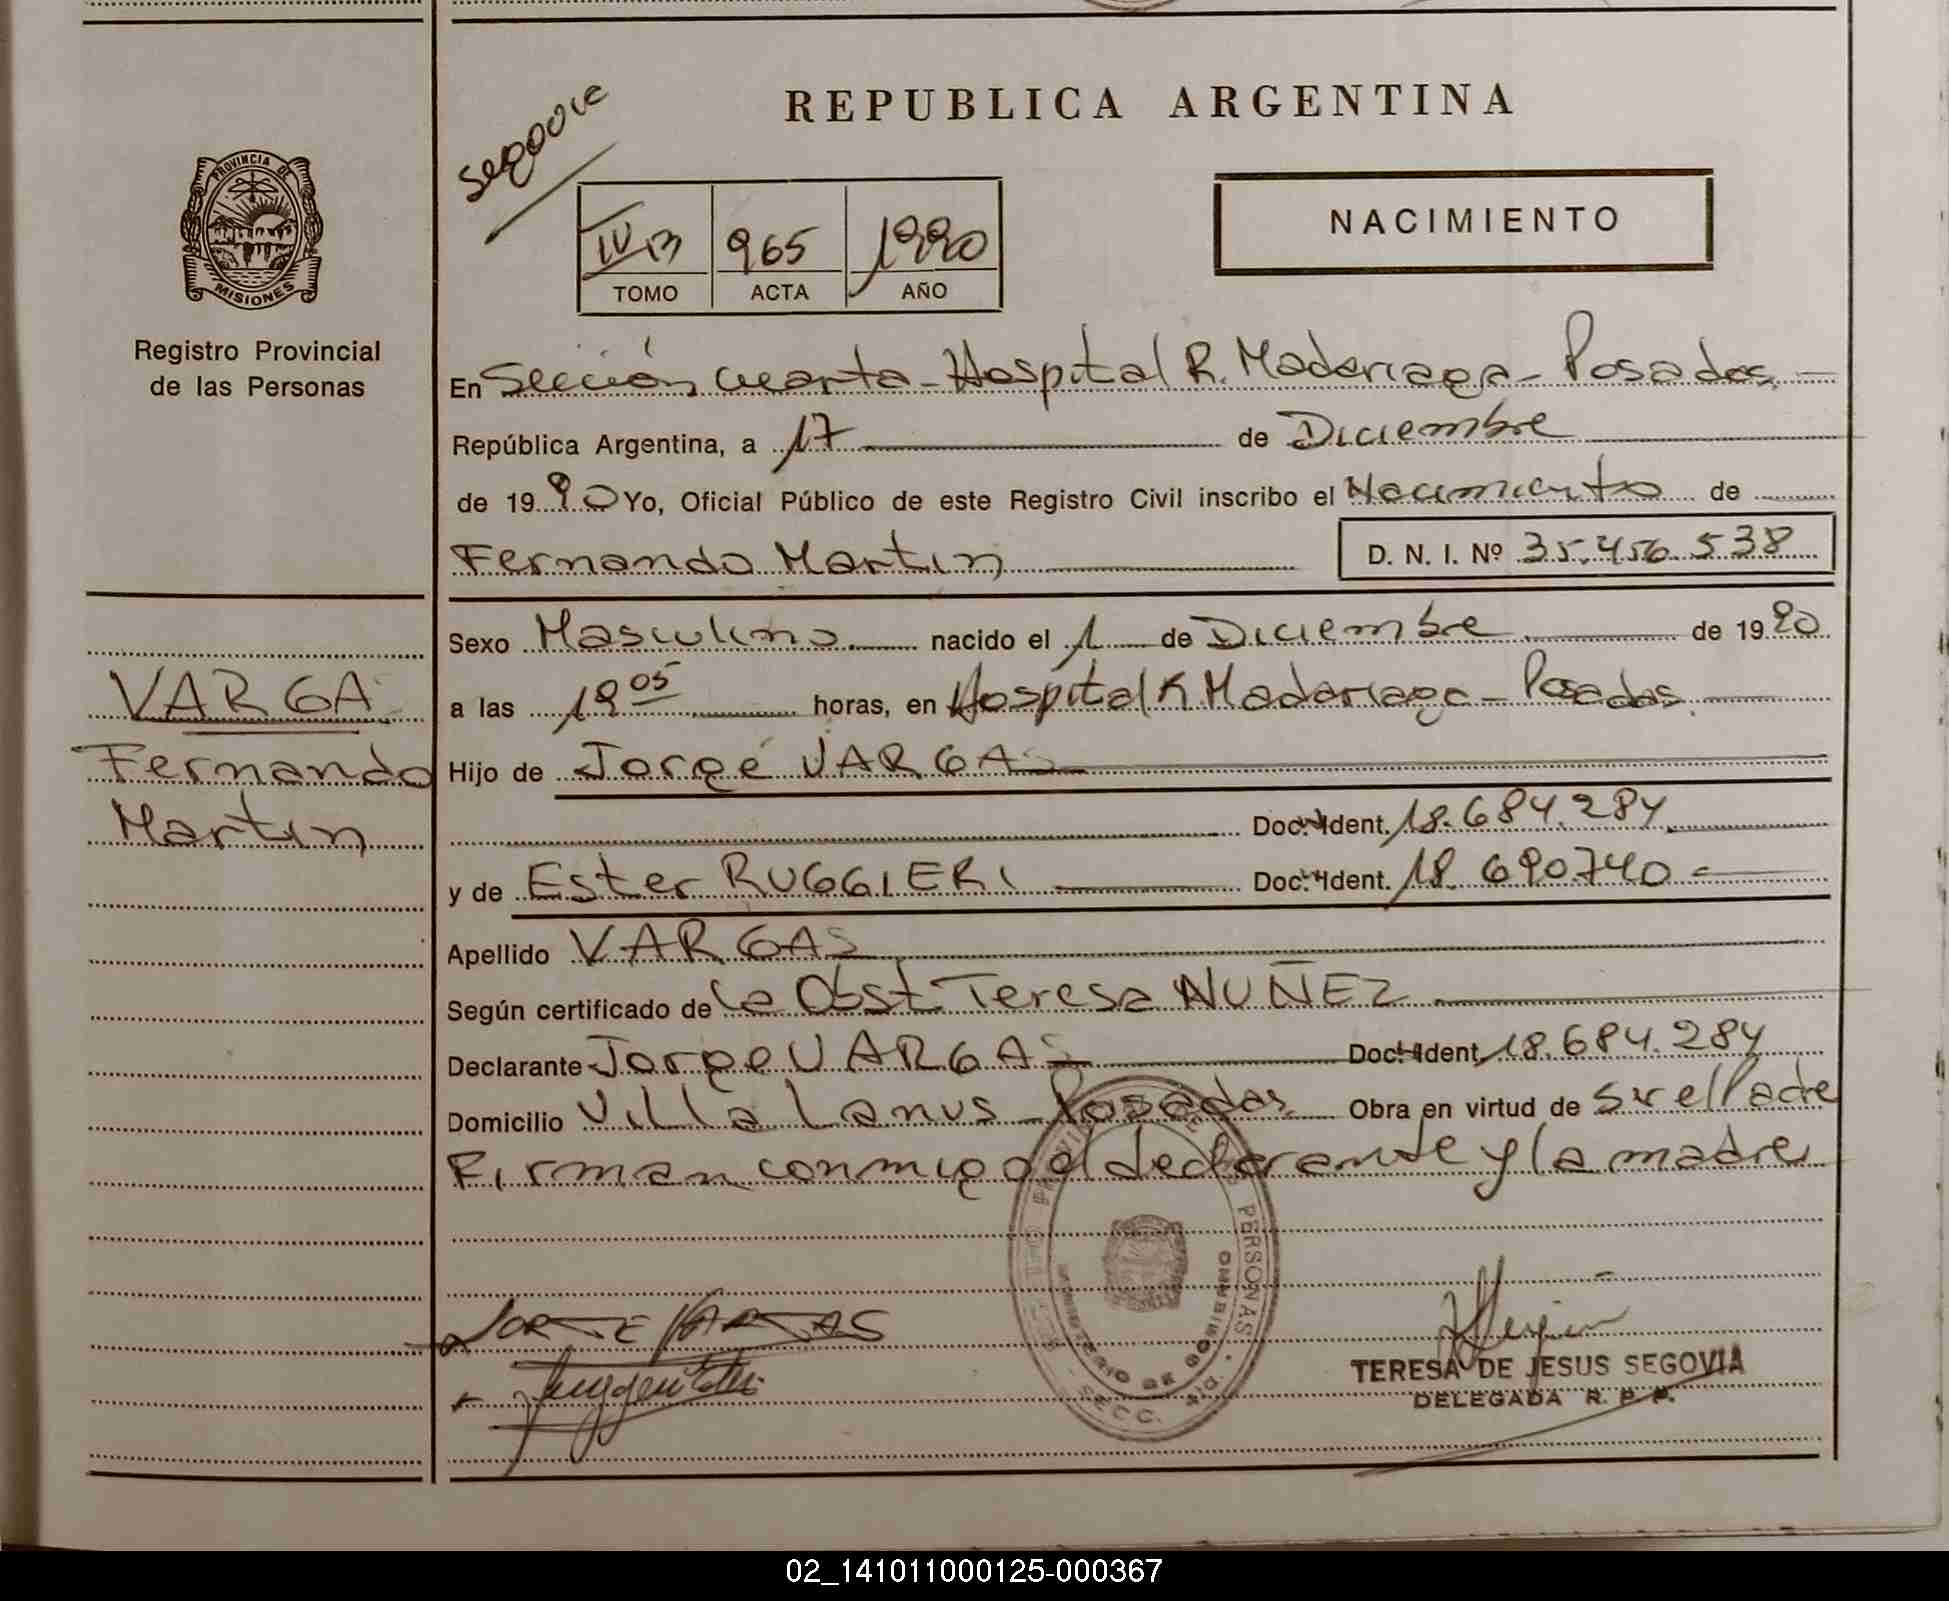 REPUBLICA ARGENTINA
Segovia
NACIMIENTO
IV B 965 1990
TOMO ACTA AÑO
PROVINCIA DE MISIONES
Registro Provincial
de las Personas
En Sección cuarta - Hospital R. Madariaga - Posadas.
República Argentina, a 17 de Diciembre
de 1990 Yo, Oficial Público de este Registro Civil inscribo el Nacimiento de
Fernando Martin D. N. I. Nº 35.456.538
Sexo Masculino nacido el 1 de Diciembre de 1990
a las 19 05 horas, en Hospital R. Madariaga - Posadas.
Hijo de Jorge VARGAS
Doc. Ident. 18.684.284
y de Ester RUGGIERI Doc. Ident. 18.690.740
Apellido VARGAS
Según certificado de la Obst. Teresa NUÑEZ
Declarante Jorge VARGAS Doc. Ident. 18.684.284
Domicilio Villa Lanus - Posadas Obra en virtud de Ser el Padre
Firman conmigo el declarante y la madre
VARGAS
Fernando
Martin
JORGE VARGAS
PERSONAS
MINISTERIO DE GOBIERNO
SECC. 4ta
TERESA DE JESUS SEGOVIA
DELEGADA R. P. P.
02_141011000125-000367